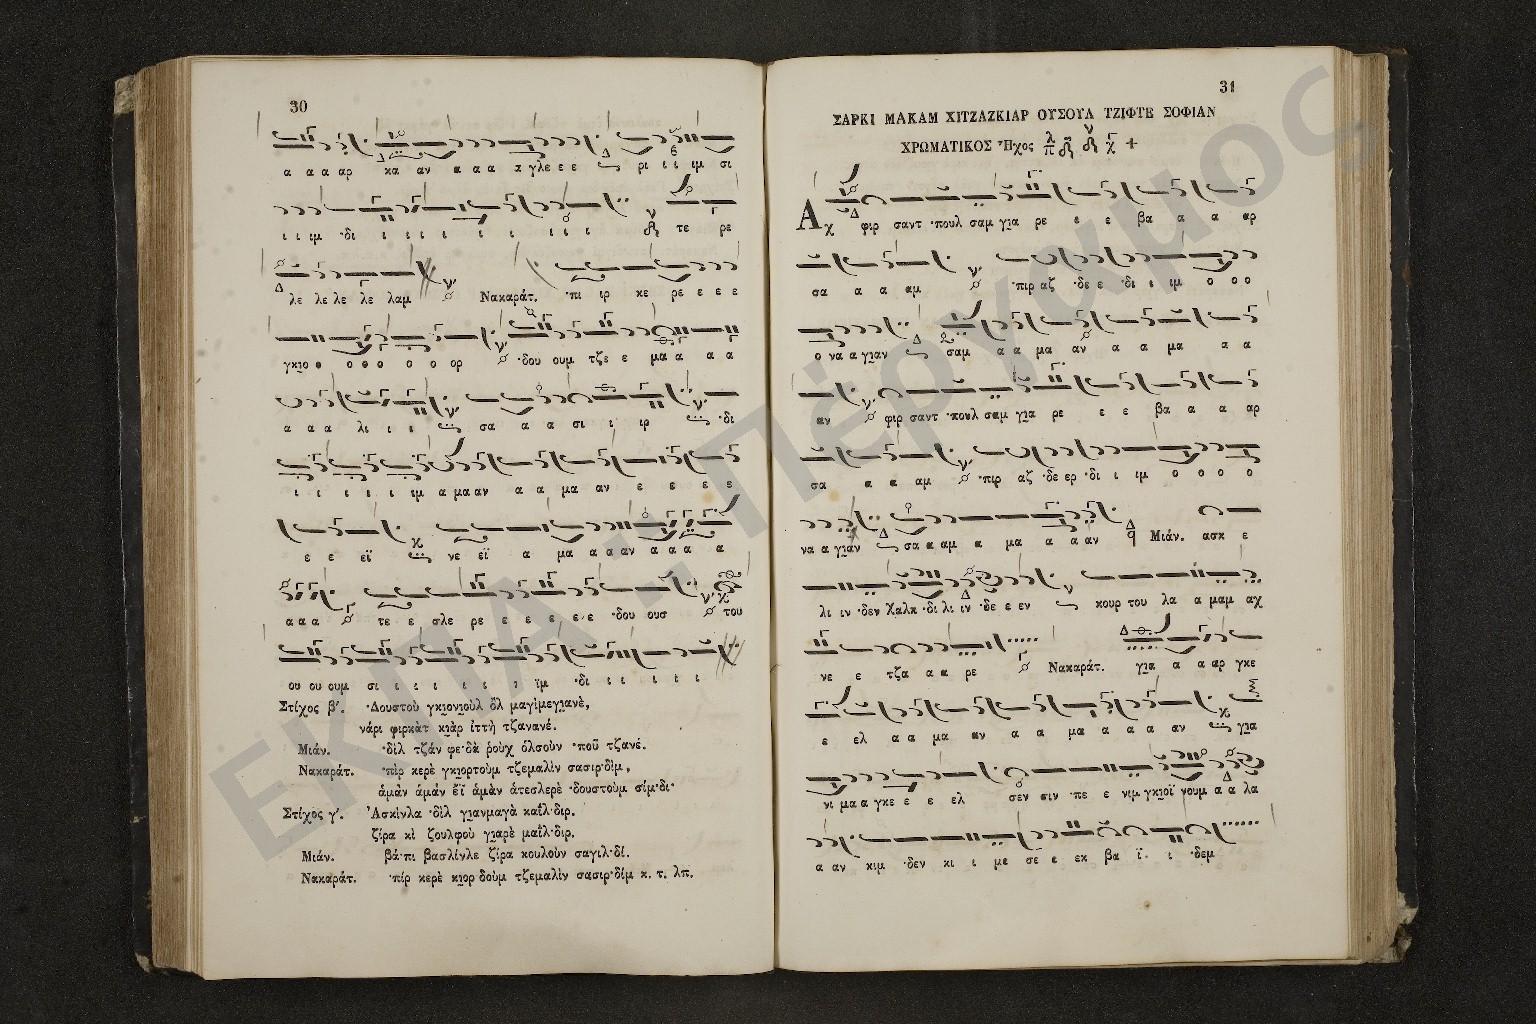 30
α α α αρ κα αν α α α α γλε ε ε ρι ι ι ιμ σι
ι ι ιμ ·δι ι ι ι ι ι ι ι ι ι τε ρε
λε λε λε λε λαμ Νακαράτ. ·πι ιρ κε ρε ε ε ε
γκιο ο ο ο ο ο ο ορ ·δου ουμ τζε ε μα α α α
α α α λι ι ι σα α α σι ι ιρ ·δι
ι ι ι ι ι ιμ α μα αν α α μα αν ε ε ε ε
ε ε εϊ νε εϊ α μα α α αν α α α α
α α α τε ε σλε ρε ε ε ε ε ε ·δου ουσ του
ου ου ουμ σι ι ι ι ι ι ι ϊμ ·δι ι ι ι ι ι
Στίχος β΄. ·Δουστοὺ γκιονιοὺλ ὂλ μαγὶμεγιανὲ,
νάρι φιρκὰτ κιὰρ ἰττὴ τζανανέ.
Μιάν. ·δὶλ τζάν φε·δὰ ῥοὺχ ὀλσοὺν ·ποῦ τζανέ.
Νακαράτ. ·πὶρ κερὲ γκιορτοὺμ τζεμαλὶν σασιρ·δὶμ,
ἀμὰν ἀμὰν ἔϊ ἀμὰν ἀτεσλερὲ ·δουστοὺμ σίμ·δι·
Στίχος γ΄. Ἀσκὶνλα ·δὶλ γιανμαγὰ καῒλ·διρ.
ζίρα κὶ ζουλφοὺ γιαρὲ μαῒλ·διρ.
Μιάν. βά·πι βασλίνλε ζίρα κουλοὺν σαγιλ·δί.
Νακαράτ. ·πίρ κερὲ κιορ δοὺμ τζεμαλὶν σασιρ·δίμ κ. τ. λπ.
31
ΣΑΡΚΙ ΜΑΚΑΜ ΧΙΤΖΑΖΚΙΑΡ ΟΥΣΟΥΛ ΤΖΙΦΤΕ ΣΟΦΙΑΝ
ΧΡΩΜΑΤΙΚΟΣ Ἦχος
Α χ φιρ σαντ ·πουλ σαμ για ρε ε ε βα α α αρ
σα α α αμ ·πιρ αζ ·δε ε ·δι ι ιμ ο ο ο
ο να α γιαν σαμ α α μα αν α α μα α α
αν φιρ σαντ ·πουλ σαμ για ρε ε ε βα α α αρ
σα α α αμ ·πιρ αζ ·δε ερ ·δι ι ιμ ο ο ο ο
να α γιαν σα α αμ α μα α α αν Μιάν. ασκ ε
λι ιν ·δεν Χαλκ ·δι λι ιν ·δε ε εν κουρ του λα α μαμ αχ
νε ε τζα α α ρε Νακαράτ. για α α αρ γκε
ε ελ α α μα αν α α μα α α α αν για
νι μα α γκε ε ε ελ σεν σιν ·πε ε νιμ γκιοϊ νουμ α α λα
α αν κιμ ·δεν κι ι με σε ε εκ βα ϊ ι ·δεμ
ΕΚΠΑ - Πέργαμος